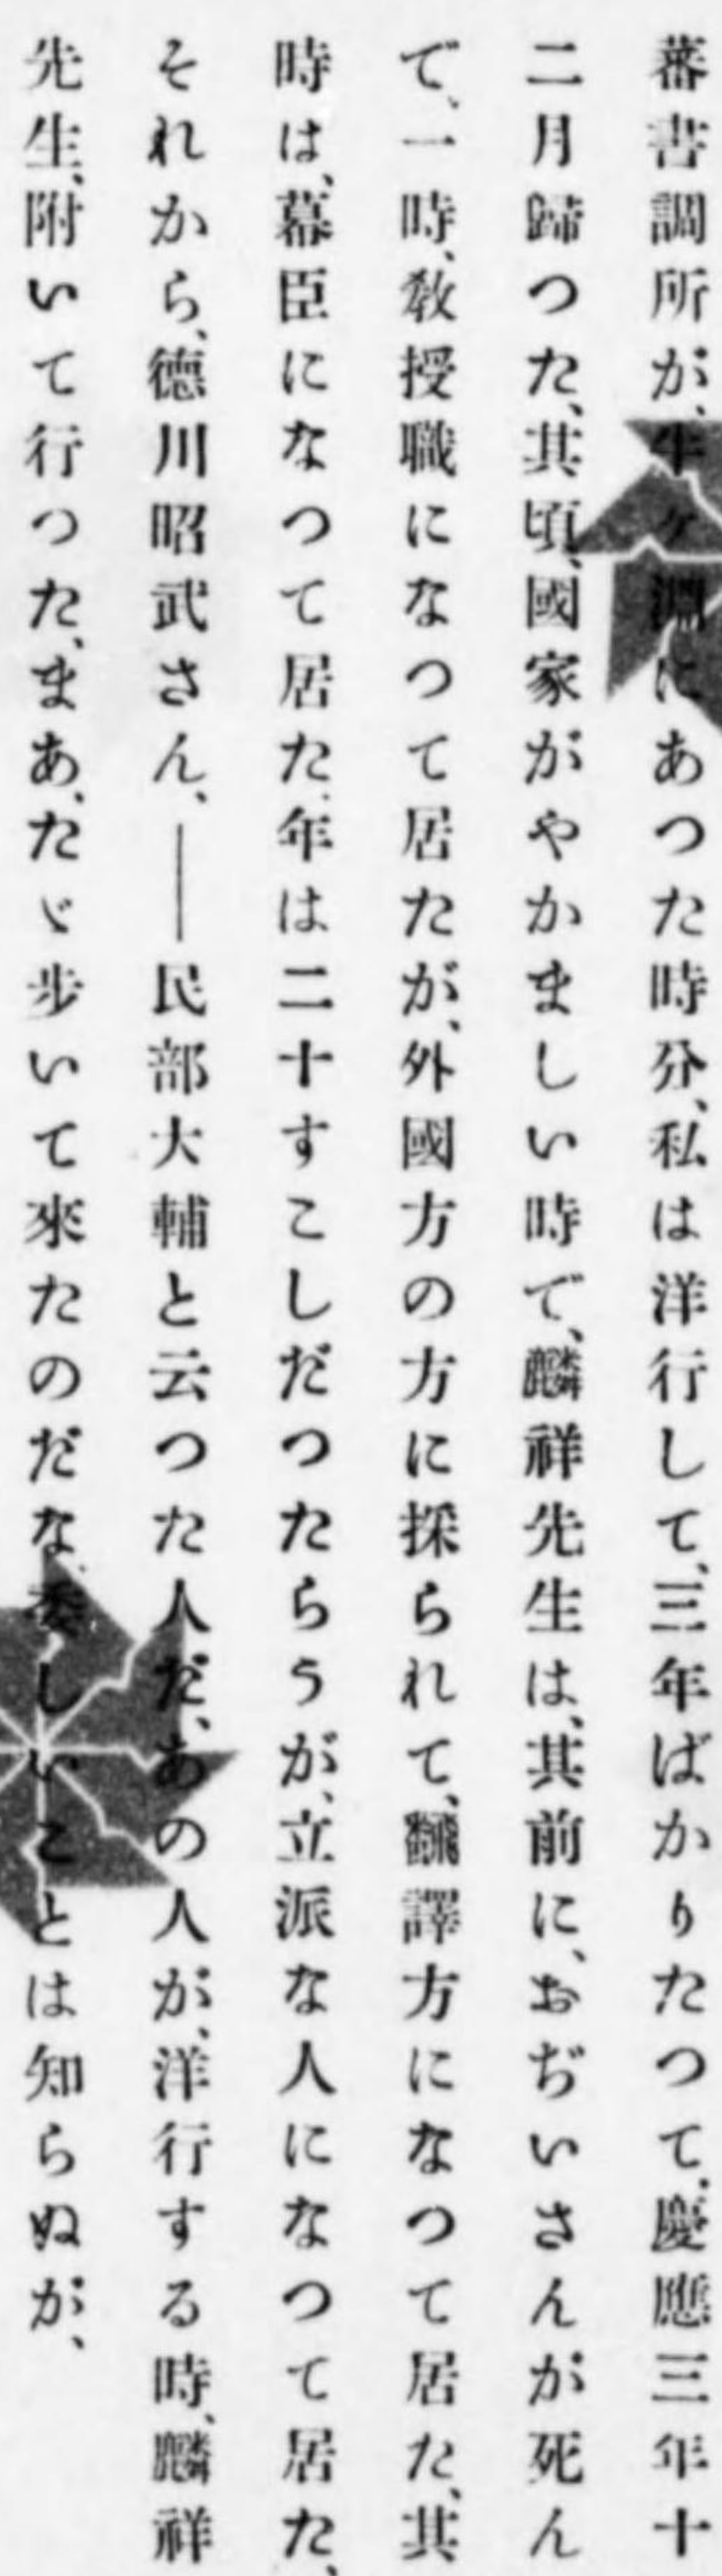 蕃書調所が、牛ヶ淵にあつた時分、私は洋行して、三年ばかりたつて、慶應三年十
二月歸つた、其頃、國家がやかましい時で、麟祥先生は、其前に、おぢいさんが死ん
で、一時、敎授職になつて居たが、外國方の方に採られて、飜譯方になつて居た、其
時は、幕臣になつて居た、年は二十すこしだつたらうが、立派な人になつて居た、
それから、德川昭武さん、――民部大輔と云つた人だ、あの人が、洋行する時、麟祥
先生、附いて行つた、まあ、たゞ步いて來たのだな、委しいことは知らぬが、